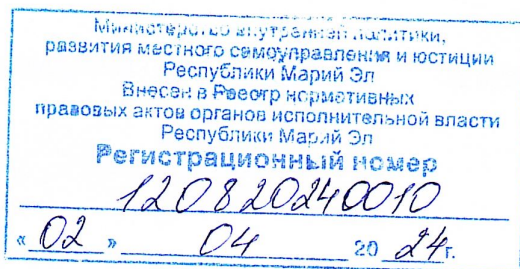 Министерство внутренней политики,
развития местного самоуправления и юстиции
Республики Марий Эл
Внесен в Реестр нормативных
правовых актов органов исполнительной власти
Республики Марий Эл
Регистрационный номер
120820240010
« 02 » 04 20 24 г.